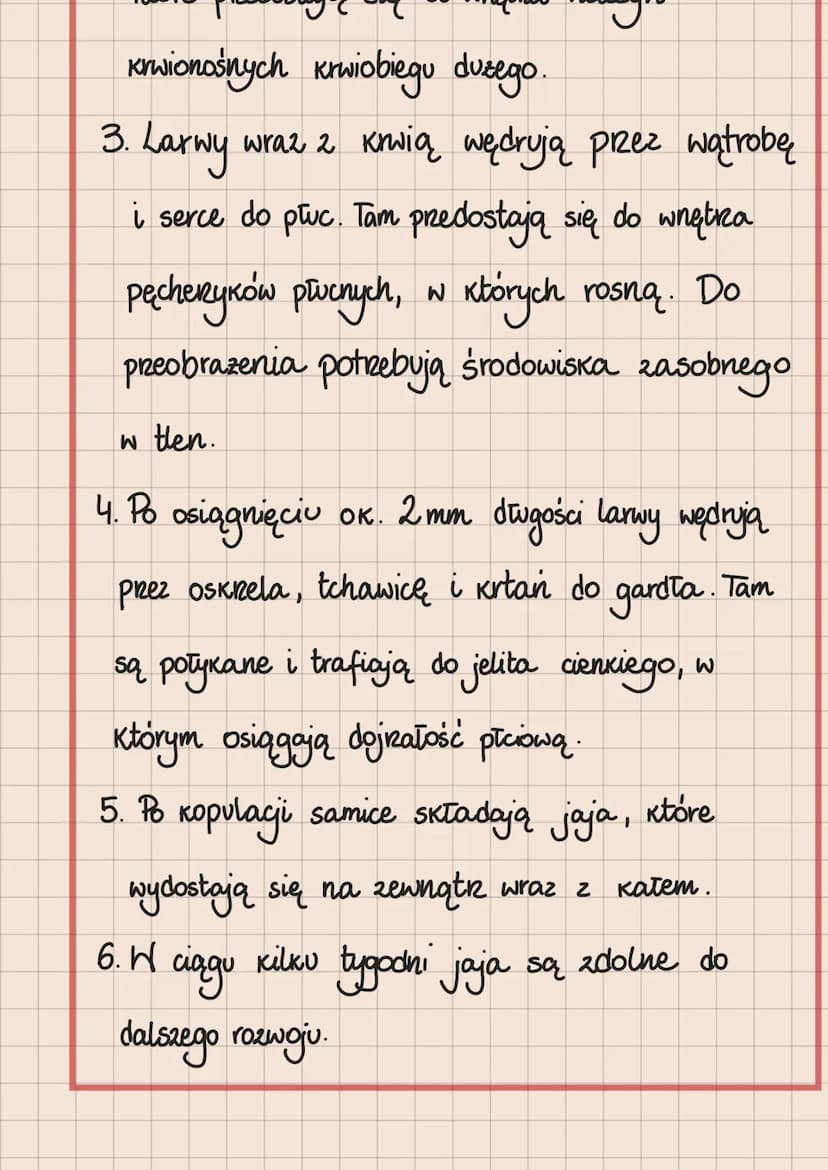 krwionośnych krwiobiegu dużego.
3. Larwy wraz z krwią wędrują przez wątrobę
i serce do płuc. Tam przedostają się do wnętrza
pęcherzyków płucnych, w których rosną. Do
przeobrażenia potrzebują środowiska zasobnego
w tlen.
4. Po osiągnięciu ok. 2mm długości larwy wędrują
przez oskrzela, tchawicę i krtań do gardła. Tam
są połykane i trafiają do jelita cienkiego, w
którym osiągają dojrzałość płciową.
5. Po kopulacji samice składają jaja, które
wydostają się na zewnątrz wraz z kałem.
6. W ciągu kilku tygodni jaja są zdolne do
dalszego rozwoju.